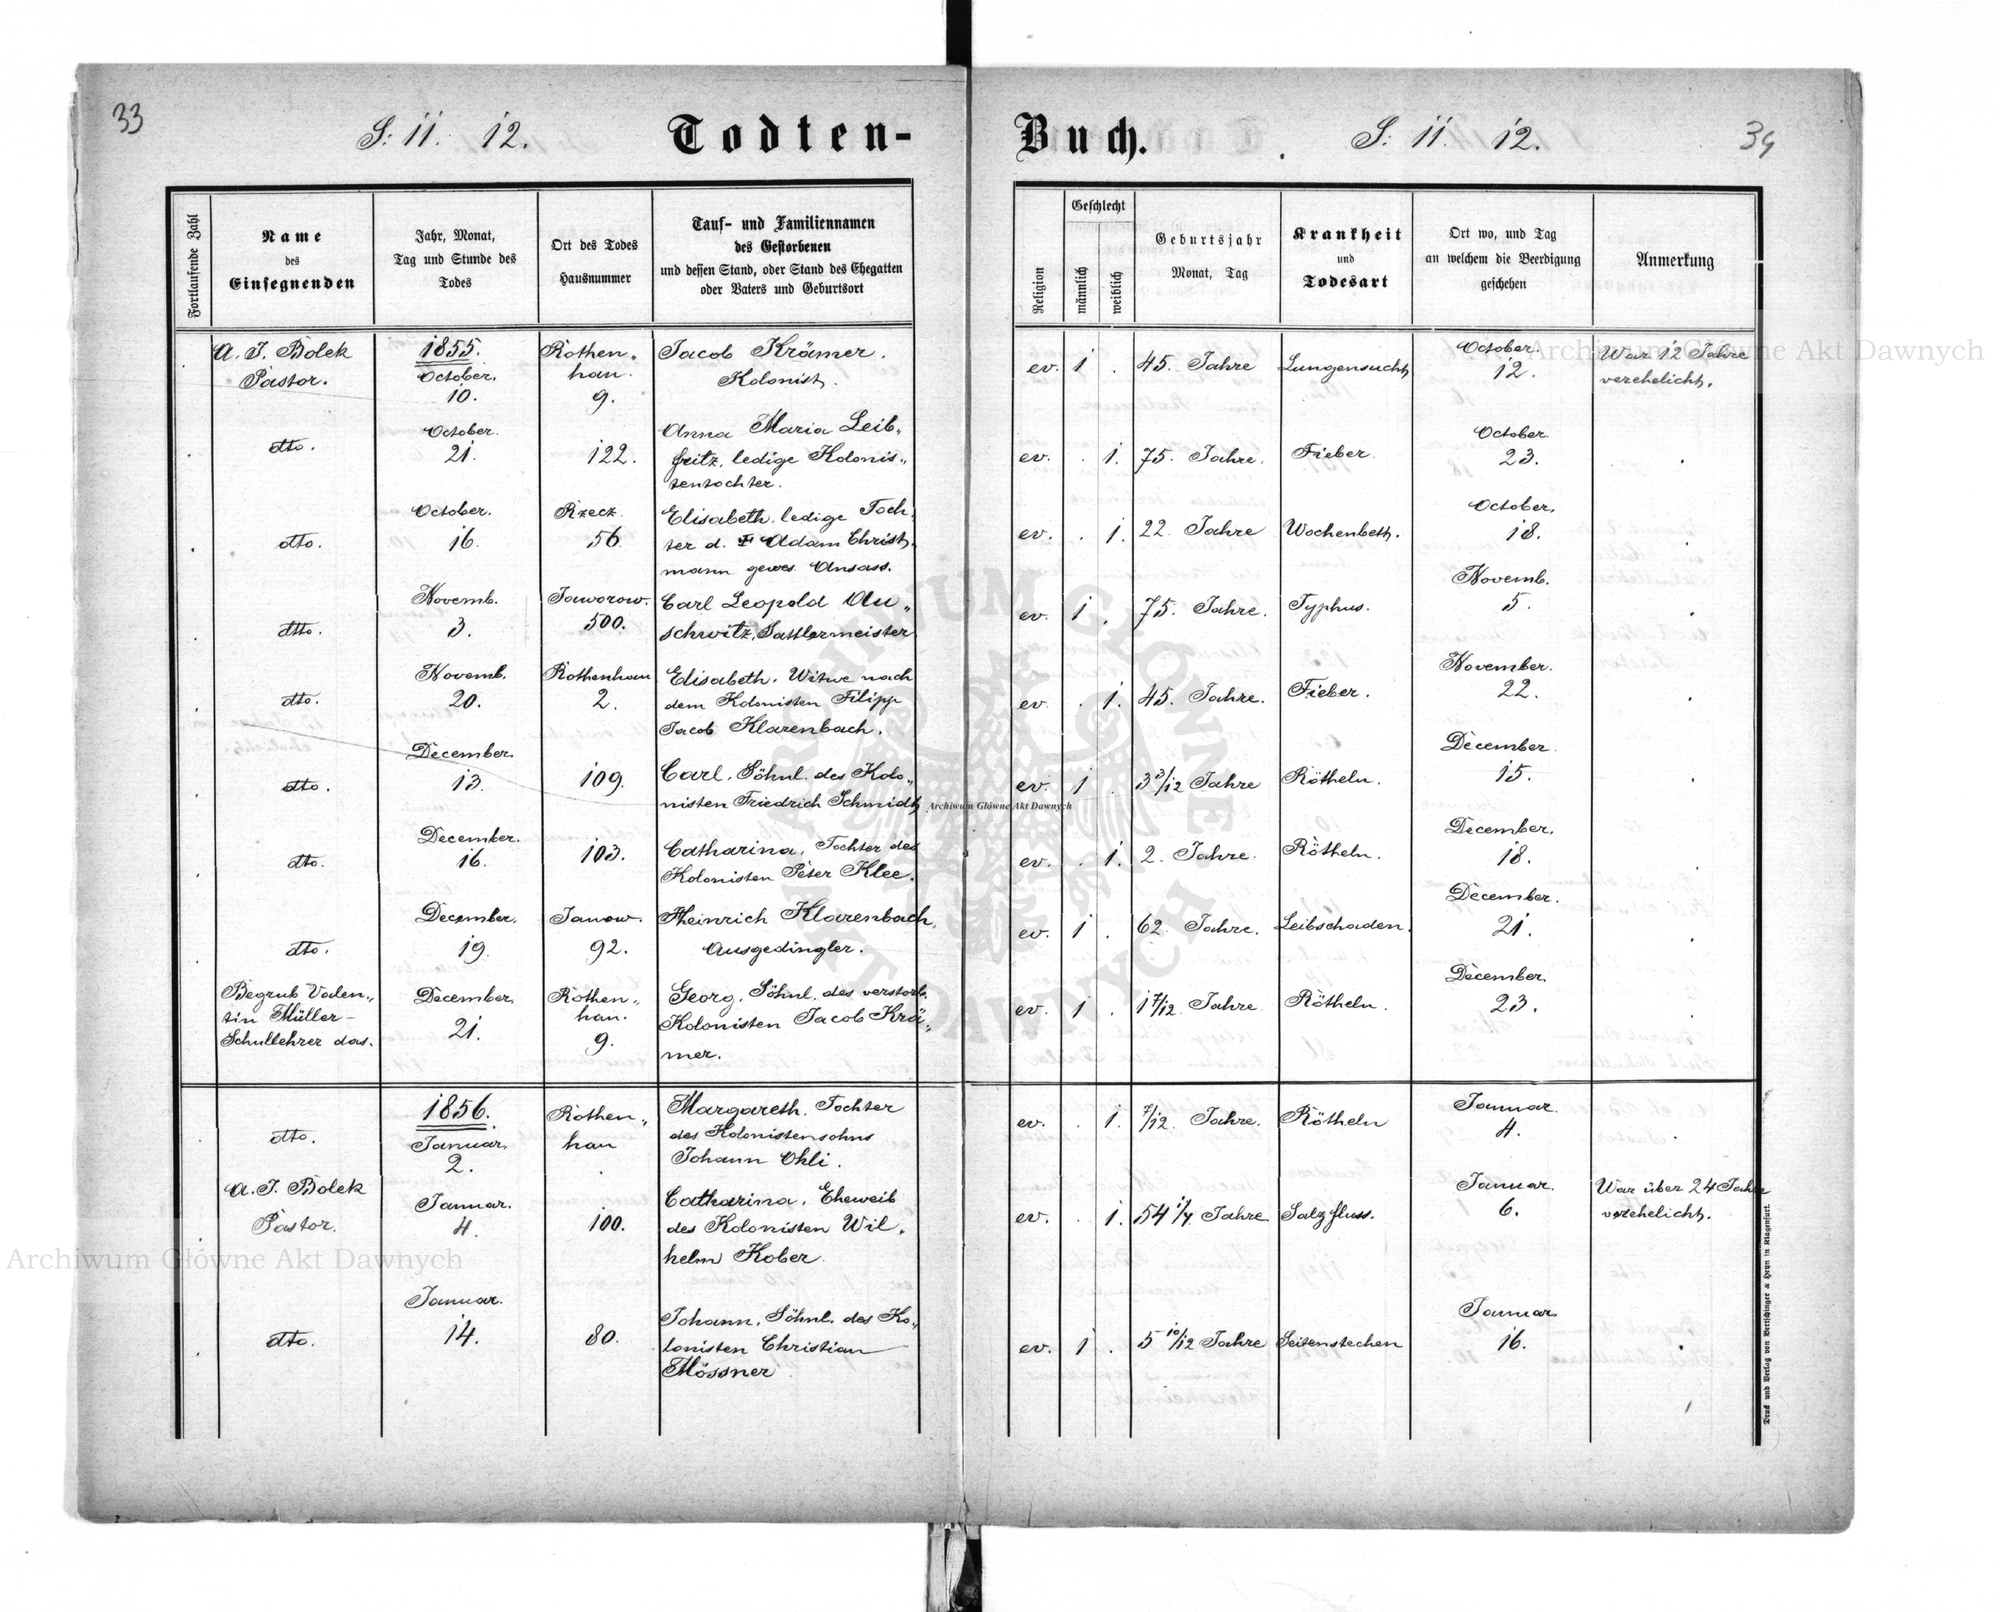 33
S: 11. 12.
Todten-
Fortlaufende Zahl
Name
des
Einsegnenden
Jahr, Monat,
Tag und Stunde des
Todes
Ort des Todes
Hausnummer
Tauf- und Familiennamen
des Gestorbenen
und dessen Stand, oder Stand des Ehegatten
oder Vaters und Geburtsort
A. J. Bolek
Pastor.
1855.
October.
10.
Rothen„
han.
9.
Jacob Krämer.
Kolonist.
dto.
October.
21.
122.
Anna Maria Leib„
fritz, ledige Kolonis„
tentochter.
dto.
October.
16.
Rzecz.
56.
Elisabeth, ledige Toch„
ter d. Adam Christ„
mann gewes. Ansäss.
dto.
Novemb.
3.
Jaworow.
500.
Carl Leopold Au„
schwitz, Sattlermeister
dto.
Novemb.
20.
Rothenhan
2.
Elisabeth, Witwe nach
dem Kolonisten Filipp
Jacob Klarenbach.
dto.
December.
13.
109.
Carl, Söhnl. des Kolo„
nisten Friedrich Schmidt
dto.
December.
16.
103.
Catharina, Tochter des
Kolonisten Peter Klee.
dto.
December.
19.
Janow.
92.
Heinrich Klarenbach,
Ausgedingler.
Begrub Valen„
tin Müller-
Schullehrer das.
December.
21.
Rothen„
han.
9.
Georg, Söhnl. des verstorb.
Kolonisten Jacob Krä„
mer.
dto.
1856.
Januar.
2.
Rothen„
han
Margareth, Tochter
des Kolonistensohns
Johann Ohli.
A. J. Bolek
Pastor.
Januar.
4.
100.
Catharina, Eheweib
des Kolonisten Wil„
helm Kober.
dto.
Januar.
14.
80.
Johann, Söhnl. des Ko„
lonisten Christian
Mössner
Buch.
S: 11. 12.
34
Religion
Geschlecht
männlich
weiblich
Geburtsjahr
Monat, Tag
Krankheit
und
Todesart
Ort wo, und Tag
an welchem die Beerdigung
geschehen
Anmerkung
ev. 1 . 45. Jahre Lungensucht
October.
12.
War 12 Jahre
verehelicht.
ev. . 1. 75. Jahre. Fieber.
October.
23.
ev. . 1. 22. Jahre Wochenbett.
October.
18.
ev. 1 . 75. Jahre. Typhus.
Novemb.
5.
ev. . 1. 45. Jahre. Fieber.
November.
22.
ev. 1 . 3 3/12 Jahre Rötheln.
December.
15.
ev. . 1. 2. Jahre. Rötheln.
December.
18.
ev. 1 . 62. Jahre. Leibschaden.
December.
21.
ev. 1 . 1 7/12 Jahre Rötheln.
December.
23.
ev. . 1. 7/12. Jahre. Rötheln
Januar.
4.
ev. . 1. 54 1/4 Jahre. Salzfluss.
Januar.
6.
War über 24 Jahre
verehelicht.
ev. 1 . 5 10/12 Jahre Seitenstechen
Januar.
16.
Druck und Verlag von Bertschinger & Heyn in Klagenfurt.
Archiwum Główne Akt Dawnych
Archiwum Główne Akt Dawnych
Archiwum Główne Akt Dawnych
ARCHIWUM GŁÓWNE AKT DAWNYCH